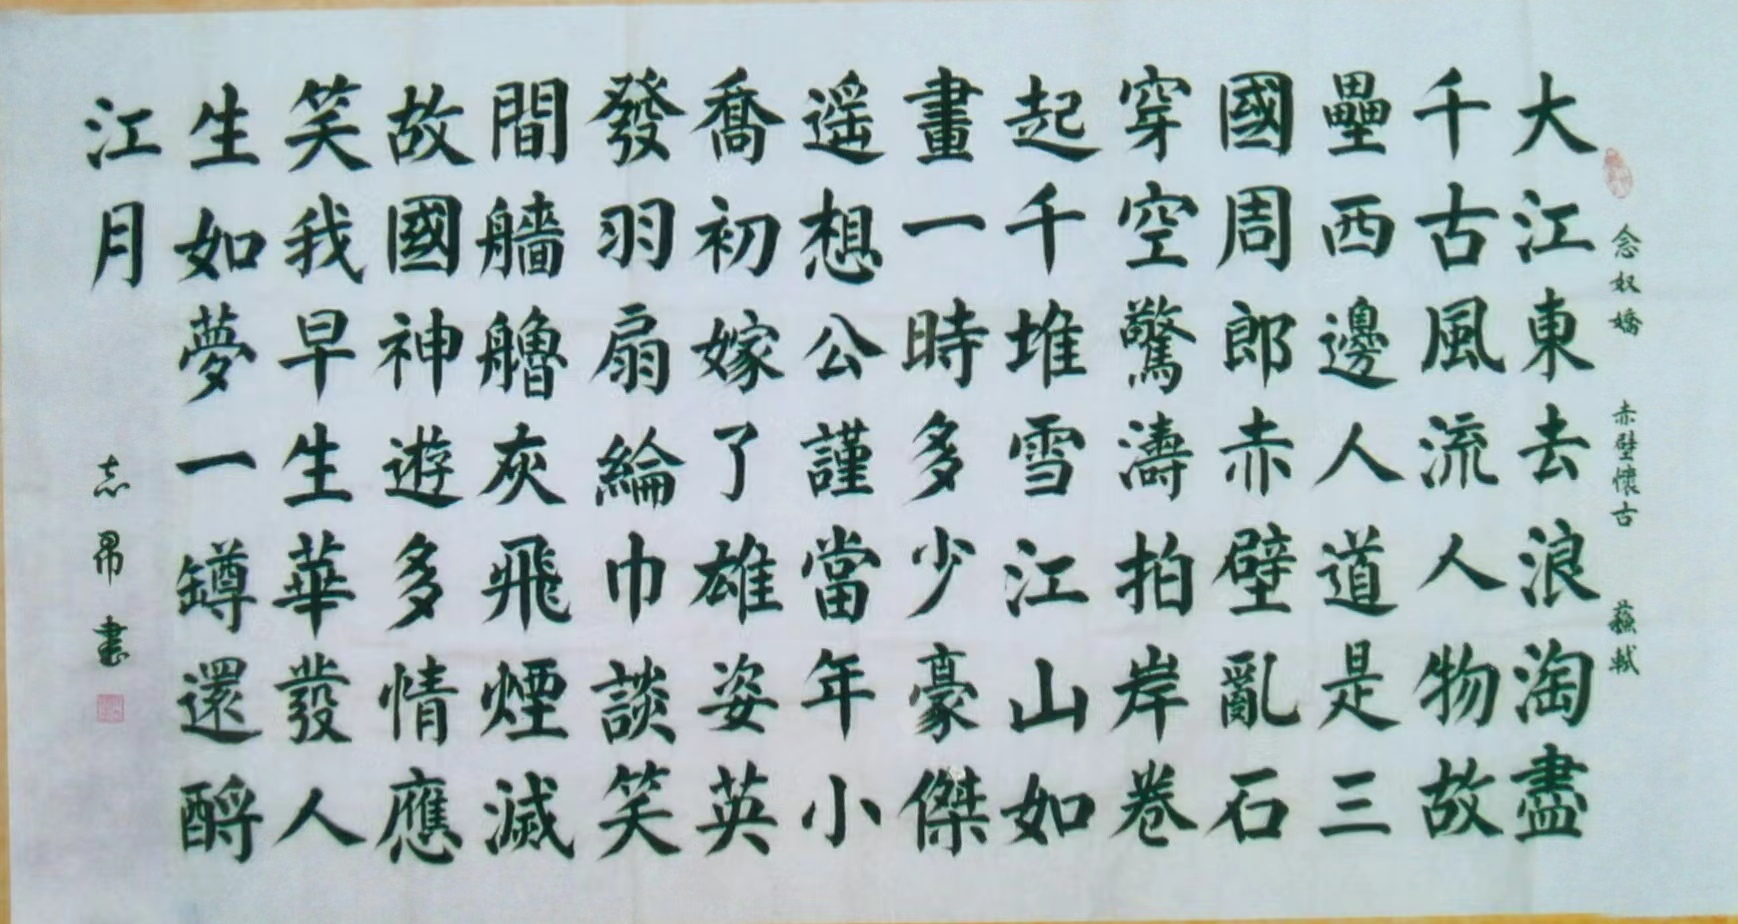 念奴嬌 赤壁懷古 蘇軾
大江東去浪淘盡
千古風流人物故
壘西邊人道是三
國周郎赤壁亂石
穿空驚濤拍岸卷
起千堆雪江山如
畫一時多少豪傑
遥想公謹當年小
喬初嫁了雄姿英
發羽扇綸巾談笑
間艢艪灰飛煙滅
故國神遊多情應
笑我早生華發人
生如夢一鐏還酹
江月
志 書